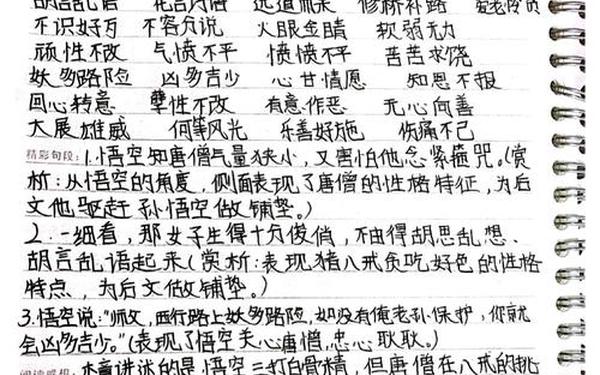 胡言乱语 花言巧语 远道而来 修桥补路 爱老怜贫
不识好歹 不容分说 火眼金睛 软弱无力
顽性不改 气愤不平 愤愤不平 苦苦求饶
妖多路险 凶多吉少 心甘情愿 知恩不报
回心转意 孽性不改 有意作恶 无心向善
大展雄威 何等风光 乐善好施 伤痛不已
精彩句段:1.悟空知唐僧气量狭小,又害怕他念紧箍咒。(赏
析:从悟空的角度,侧面表现了唐僧的性格特征,为后
文他驱赶孙悟空做铺垫。)
2.一细看,那女子生得十分俊俏,不由得胡思乱想、
胡言乱语起来(赏析:表现猪八戒贪吃好色的性格
特点,为后文做铺垫。)
3.悟空说:"师父,西行路上妖多路险,如没有俺老孙保护,你就
会凶多吉少。"(表现了悟空关心唐僧,忠心耿耿。)
阅读感想:本章讲述的是悟空三打白骨精,但唐僧在八戒的挑